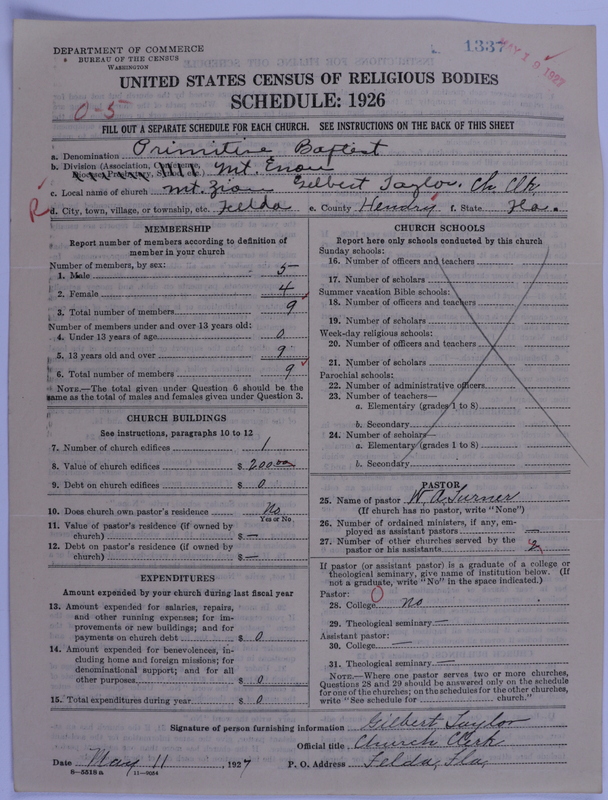 DEPARTMENT OF COMMERCE
BUREAU OF THE CENSUS
WASHINGTON
1337
MAY 19 1927
UNITED STATES CENSUS OF RELIGIOUS BODIES
SCHEDULE: 1926
0-5
FILL OUT A SEPARATE SCHEDULE FOR EACH CHURCH. SEE INSTRUCTIONS ON THE BACK OF THIS SHEET
a. Denomination Primitive Baptist
b. Division (Association, Conference, Mt. Enon
c. Local name of church Mt. Zion Gilbert Taylor. Ch. Clk.
R
d. City, town, village, or township, etc. Felda e. County Hendry f. State Fla.
MEMBERSHIP
Report number of members according to definition of
member in your church
Number of members, by sex:
1. Male 5
2. Female 4
3. Total number of members 9
Number of members under and over 13 years old:
4. Under 13 years of age 0
5. 13 years old and over 9
6. Total number of members 9
NOTE.—The total given under Question 6 should be the
same as the total of males and females given under Question 3.
CHURCH BUILDINGS
See instructions, paragraphs 10 to 12
7. Number of church edifices 1
8. Value of church edifices $ 200.00
9. Debt on church edifices $ 0
10. Does church own pastor's residence No
Yes or No
11. Value of pastor's residence (if owned by
church) $ —
12. Debt on pastor's residence (if owned by
church) $ —
EXPENDITURES
Amount expended by your church during last fiscal year
13. Amount expended for salaries, repairs,
and other running expenses; for im-
provements or new buildings; and for
payments on church debt $ 0
14. Amount expended for benevolences, in-
cluding home and foreign missions; for
denominational support; and for all
other purposes $ 0
15. Total expenditures during year $ 0
CHURCH SCHOOLS
Report here only schools conducted by this church
Sunday schools:
16. Number of officers and teachers
17. Number of scholars
Summer vacation Bible schools:
18. Number of officers and teachers
19. Number of scholars
Week-day religious schools:
20. Number of officers and teachers
21. Number of scholars
Parochial schools:
22. Number of administrative officers
23. Number of teachers—
a. Elementary (grades 1 to 8)
b. Secondary
24. Number of scholars—
a. Elementary (grades 1 to 8)
b. Secondary
PASTOR
25. Name of pastor W A Turner
(If church has no pastor, write "None")
26. Number of ordained ministers, if any, em-
ployed as assistant pastors —
27. Number of other churches served by the
pastor or his assistants 2
If pastor (or assistant pastor) is a graduate of a college or
theological seminary, give name of institution below. (If
not a graduate, write "No" in the space indicated.)
Pastor: 0
28. College No
29. Theological seminary —
Assistant pastor:
30. College —
31. Theological seminary —
NOTE.—Where one pastor serves two or more churches,
Questions 28 and 29 should be answered only on the schedule
for one of the churches; on the schedules for the other churches,
write "See schedule for church."
Signature of person furnishing information Gilbert Taylor
Official title Church Clerk
Date May 11, 1927 P. O. Address Felda, Fla,
8-5518a 11-9054